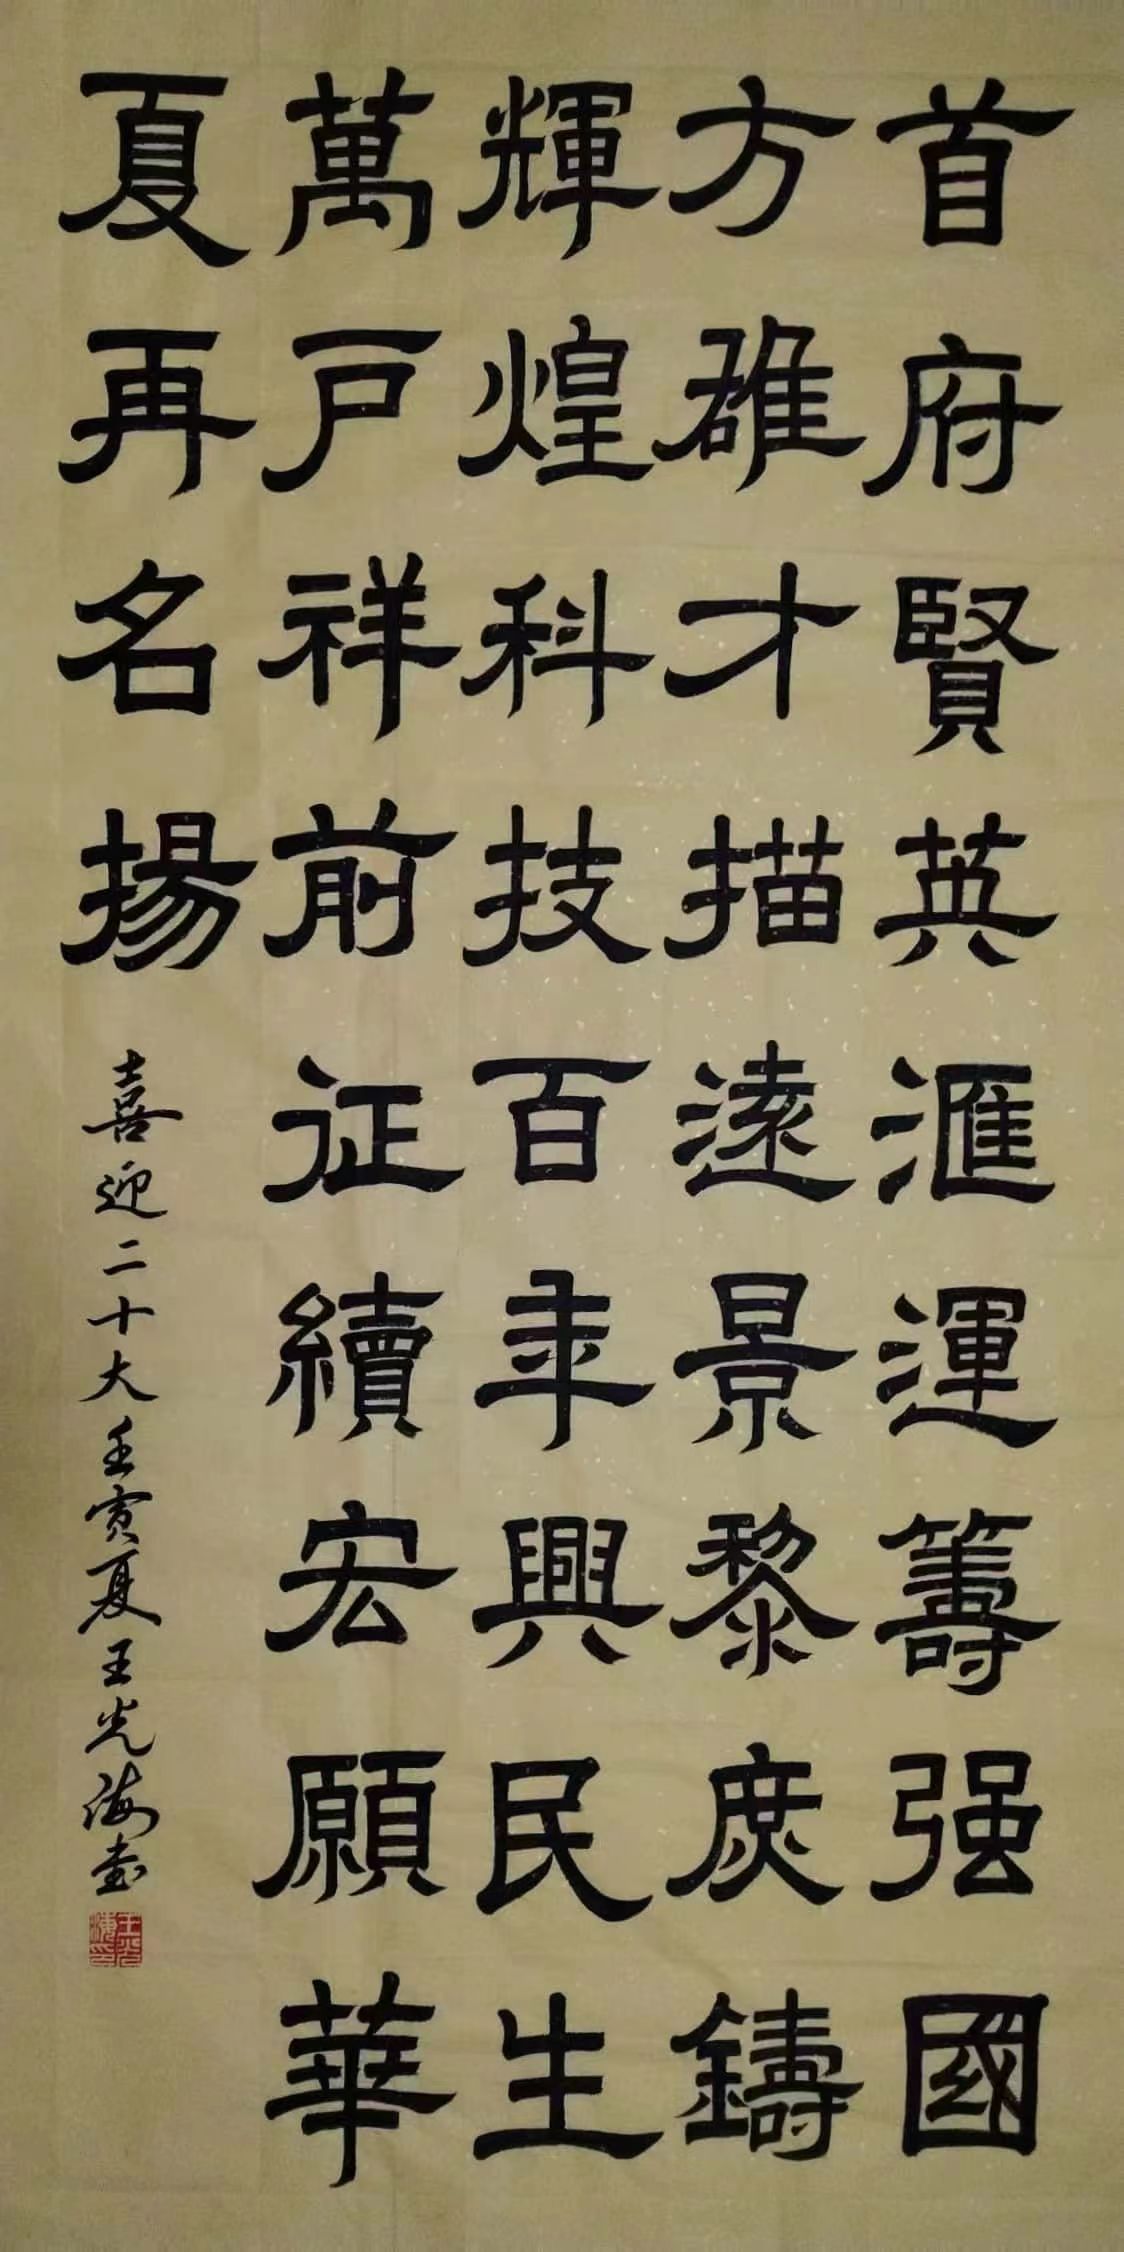 首府賢英滙運籌强國
方雄才描遠景黎庶鑄
輝煌科技百年興民生
萬戶祥前征續宏願華
夏再名揚
喜迎二十大壬寅夏王光海書